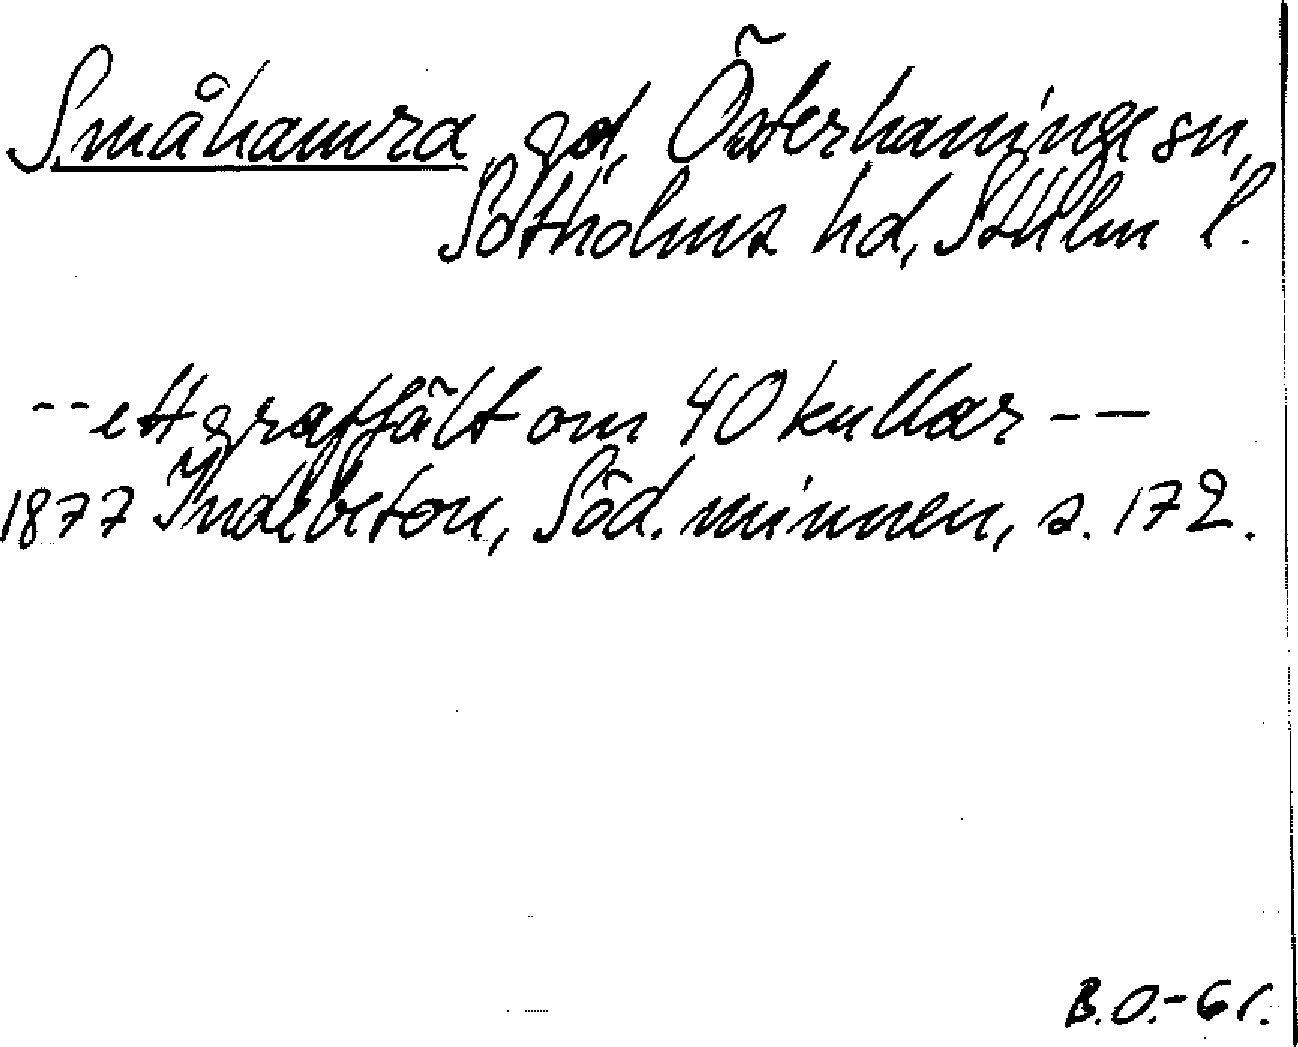 Småhamra, gd, Österhaninge sn,
Sotholms hd, Sthlm l.
-- ett graffält om 40 kullar --
1877 Indebetou, Söd. minnen, s. 172.
B.O.-Gr.